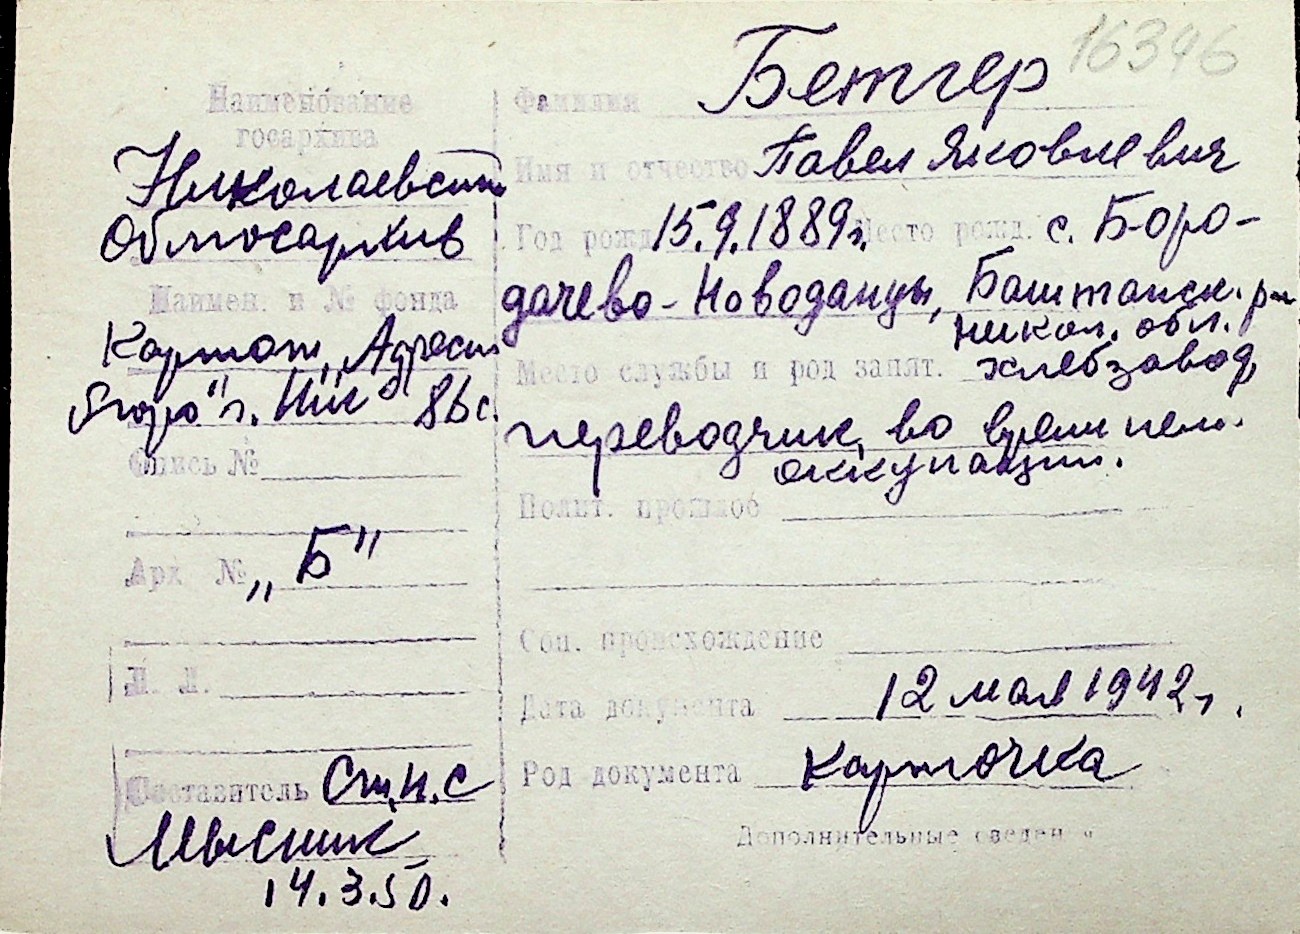 16346
Наименование
госархива
Николаевский
Облгосархив
Наимен. и № фонда
г. Ник 86 с.
Опись №
Арх № „Б"
Л. Л.
Составитель Ст. н. с
Мысник
14.3.50.
Фамилия Бетгер
Имя и отчество Павел Яковлевич
Год рожд 15.9.1889г. Место рожд. с. Боро-
дачево-Новоданцы, Баштанск. р-н
никол. обл.
Место службы и род занят. хлебзавод,
переводчик во время нем.
оккупации.
Полит. прошлое
Соц. происхождение
Дата документа 12 мая 1942г.
Род документа карточка
Дополнительные сведен